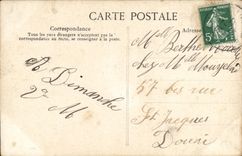 CARTE POSTALE
Correspondance
Tous les pays étrangers n'acceptent pas la
correspondance au recto, se renseigner à la poste.
Adresse
Mlle Berthe
chez Mlle
57 bis rue
St Jacques
Douai
A Dimanche
M
5